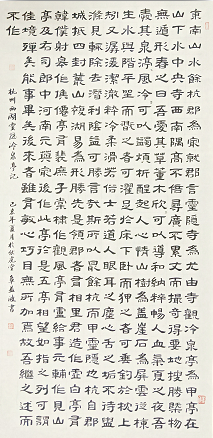 東南山水餘杭郡為最就郡言靈隱寺為尤由寺觀冷泉亭為甲亭在
山下水中央寺西南隅高不倍尋廣不累丈而撮奇得要地搜勝概物
無遁形春之日吾愛其草薰薰木欣欣可以導和納粹暢人血氣夏之夜吾
愛其泉渟渟風泠泠可以蠲煩析酲起人心情山樹為蓋岩石為屏雲從棟
生水與階平坐而玩之者可濯足於床下臥而狎之者可垂釣於枕上
矧又潺湲潔澈粹冷柔滑若俗士若道人眼耳之塵心舌之垢不待盥
滌見輒除去潛利陰益可勝言哉斯所以最餘杭而甲靈隱也杭自郡
城抵四封叢山複湖易為形勝先是領郡者有相里君造作虛白亭有
韓僕射皋作候仙亭有裴庶子棠棣作觀風亭有盧給事元輔作見山
亭及右司郎中河南元藇最後作此亭於是五亭相望如指之列可謂
佳境殫矣能事畢矣後來者雖有敏心巧目無所加焉故吾繼之述而
不作
杭州西湖靈隱冷泉亭記